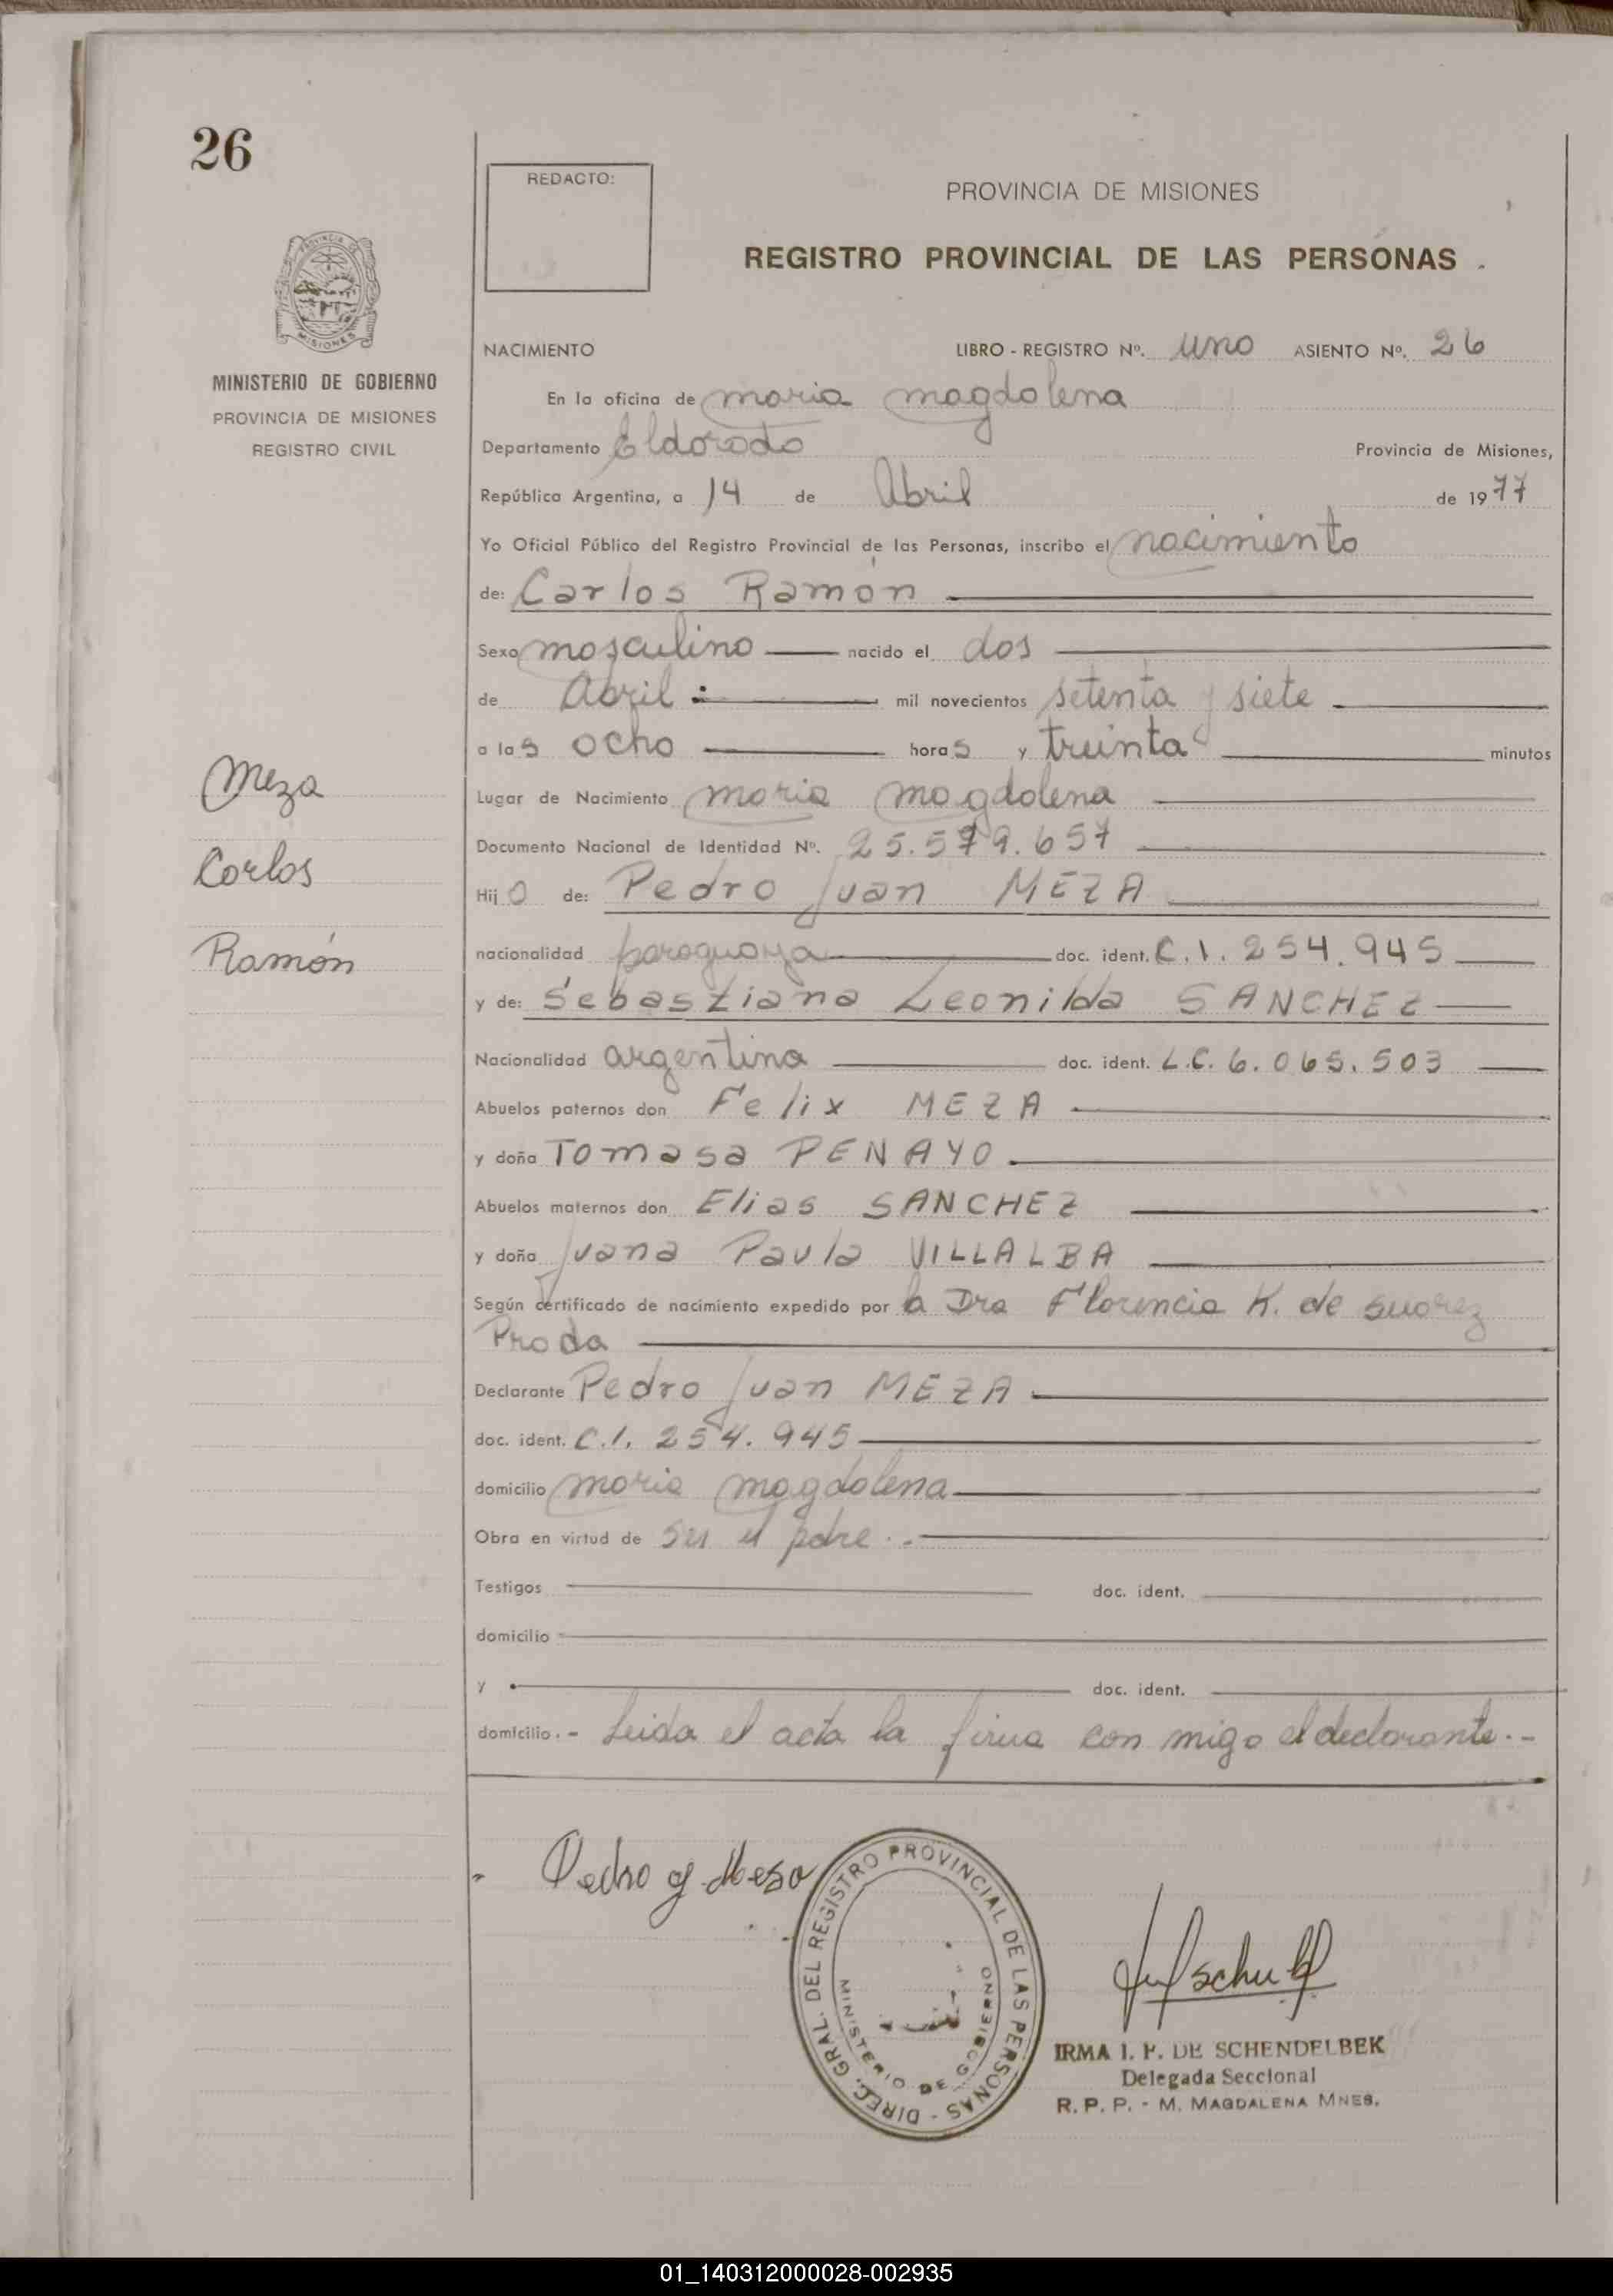 26
REDACTO:
PROVINCIA DE MISIONES
REGISTRO PROVINCIAL DE LAS PERSONAS
MISIONES
MINISTERIO DE GOBIERNO
PROVINCIA DE MISIONES
REGISTRO CIVIL
NACIMIENTO LIBRO - REGISTRO Nº. uno ASIENTO Nº. 26
En la oficina de Maria Magdalena
Departamento Eldorado Provincia de Misiones,
República Argentina, a 14 de Abril de 1977
Yo Oficial Público del Registro Provincial de las Personas, inscribo el nacimiento
de: Carlos Ramón
Sexo masculino nacido el dos
de Abril mil novecientos setenta y siete
a las ocho horas y treinta minutos
Meza
Lugar de Nacimiento Maria Magdalena
Documento Nacional de Identidad Nº. 25.579.657
Carlos
Hijo de: Pedro Juan MEZA
Ramón
nacionalidad paraguaya doc. ident. C.I. 254.945
y de: Sebastiana Leonilda SANCHEZ
Nacionalidad argentina doc. ident. L.C. 6.065.503
Abuelos paternos don Felix MEZA
y doña Tomasa PENAYO
Abuelos maternos don Elias SANCHEZ
y doña Juana Paula VILLALBA
Según certificado de nacimiento expedido por la Dra Florencia K. de Suarez
Proda
Declarante Pedro Juan MEZA
doc. ident. C.I. 254.945
domicilio Maria Magdalena
Obra en virtud de ser el padre.-
Testigos doc. ident.
domicilio
y doc. ident.
domicilio.- Leida el acta la firma con migo el declarante.-
Pedro J. Meza
DIREC. GRAL. DEL REGISTRO PROVINCIAL DE LAS PERSONAS -
MINISTERIO DE GOBIERNO
IRMA I. P. DE SCHENDELBEK
Delegada Seccional
R. P. P. - M. MAGDALENA MNES.
01_140312000028-002935